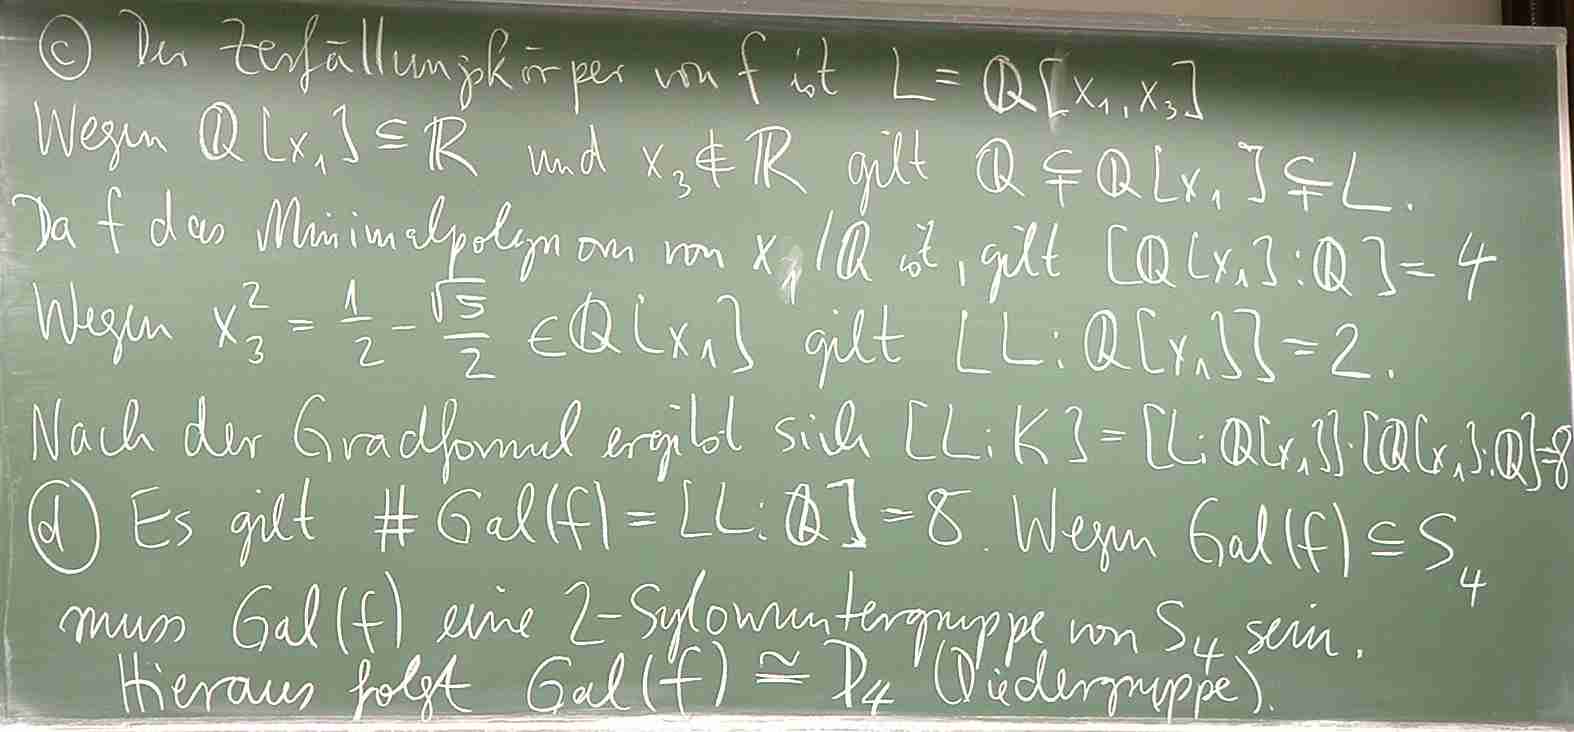 ⓒ Der Zerfällungskörper von f ist L = ℚ[x₁, x₃]
Wegen ℚ[x₁] ⊆ ℝ und x₃ ∉ ℝ gilt ℚ ⊊ ℚ[x₁] ⊊ L.
Da f das Minimalpolynom von x₁/ℚ ist, gilt [ℚ[x₁]:ℚ] = 4
Wegen x₃² = 1/2 - √5/2 ∈ ℚ[x₁] gilt [L:ℚ[x₁]] = 2.
Nach der Gradformel ergibt sich [L:K] = [L:ℚ[x₁]]·[ℚ[x₁]:ℚ]=8
ⓓ Es gilt # Gal(f) = [L:ℚ] = 8. Wegen Gal(f) ⊆ S₄
muss Gal(f) eine 2-Sylowuntergruppe von S₄ sein.
Hieraus folgt Gal(f) ≅ D₄ (Diedergruppe).